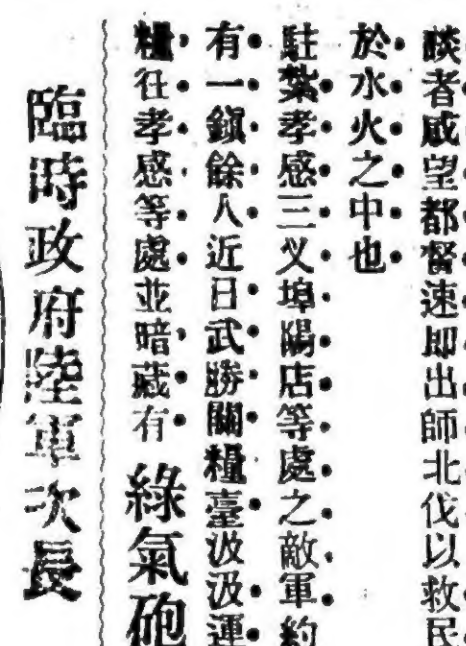 談者咸望都督速即出師北伐以救民
於水火之中也
駐紮孝感三义埠陽店等處之敵軍約
有一鎮餘人近日武勝關糧臺汲汲運
糧往孝感等處並暗藏有綠氣砲
臨時政府陸軍次長